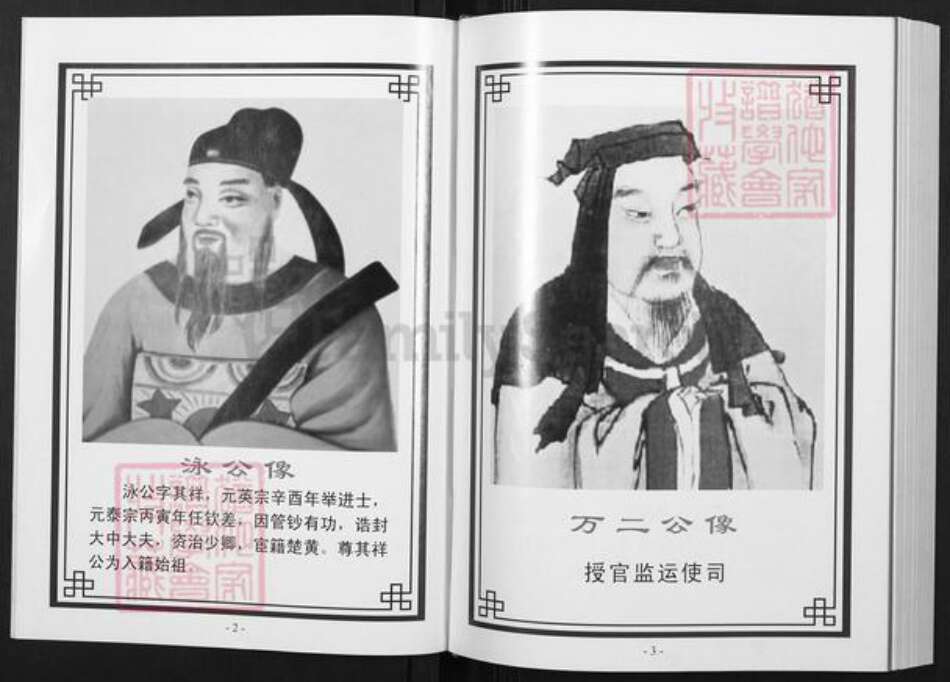 泳公像
泳公字其祥，元英宗辛酉年举进士，
元泰宗丙寅年任钦差，因管钞有功，诰封
大中大夫，资治少卿，宦籍楚黄。尊其祥
公为入籍始祖
- 2 -
万二公像
授官监运使司
- 3 -